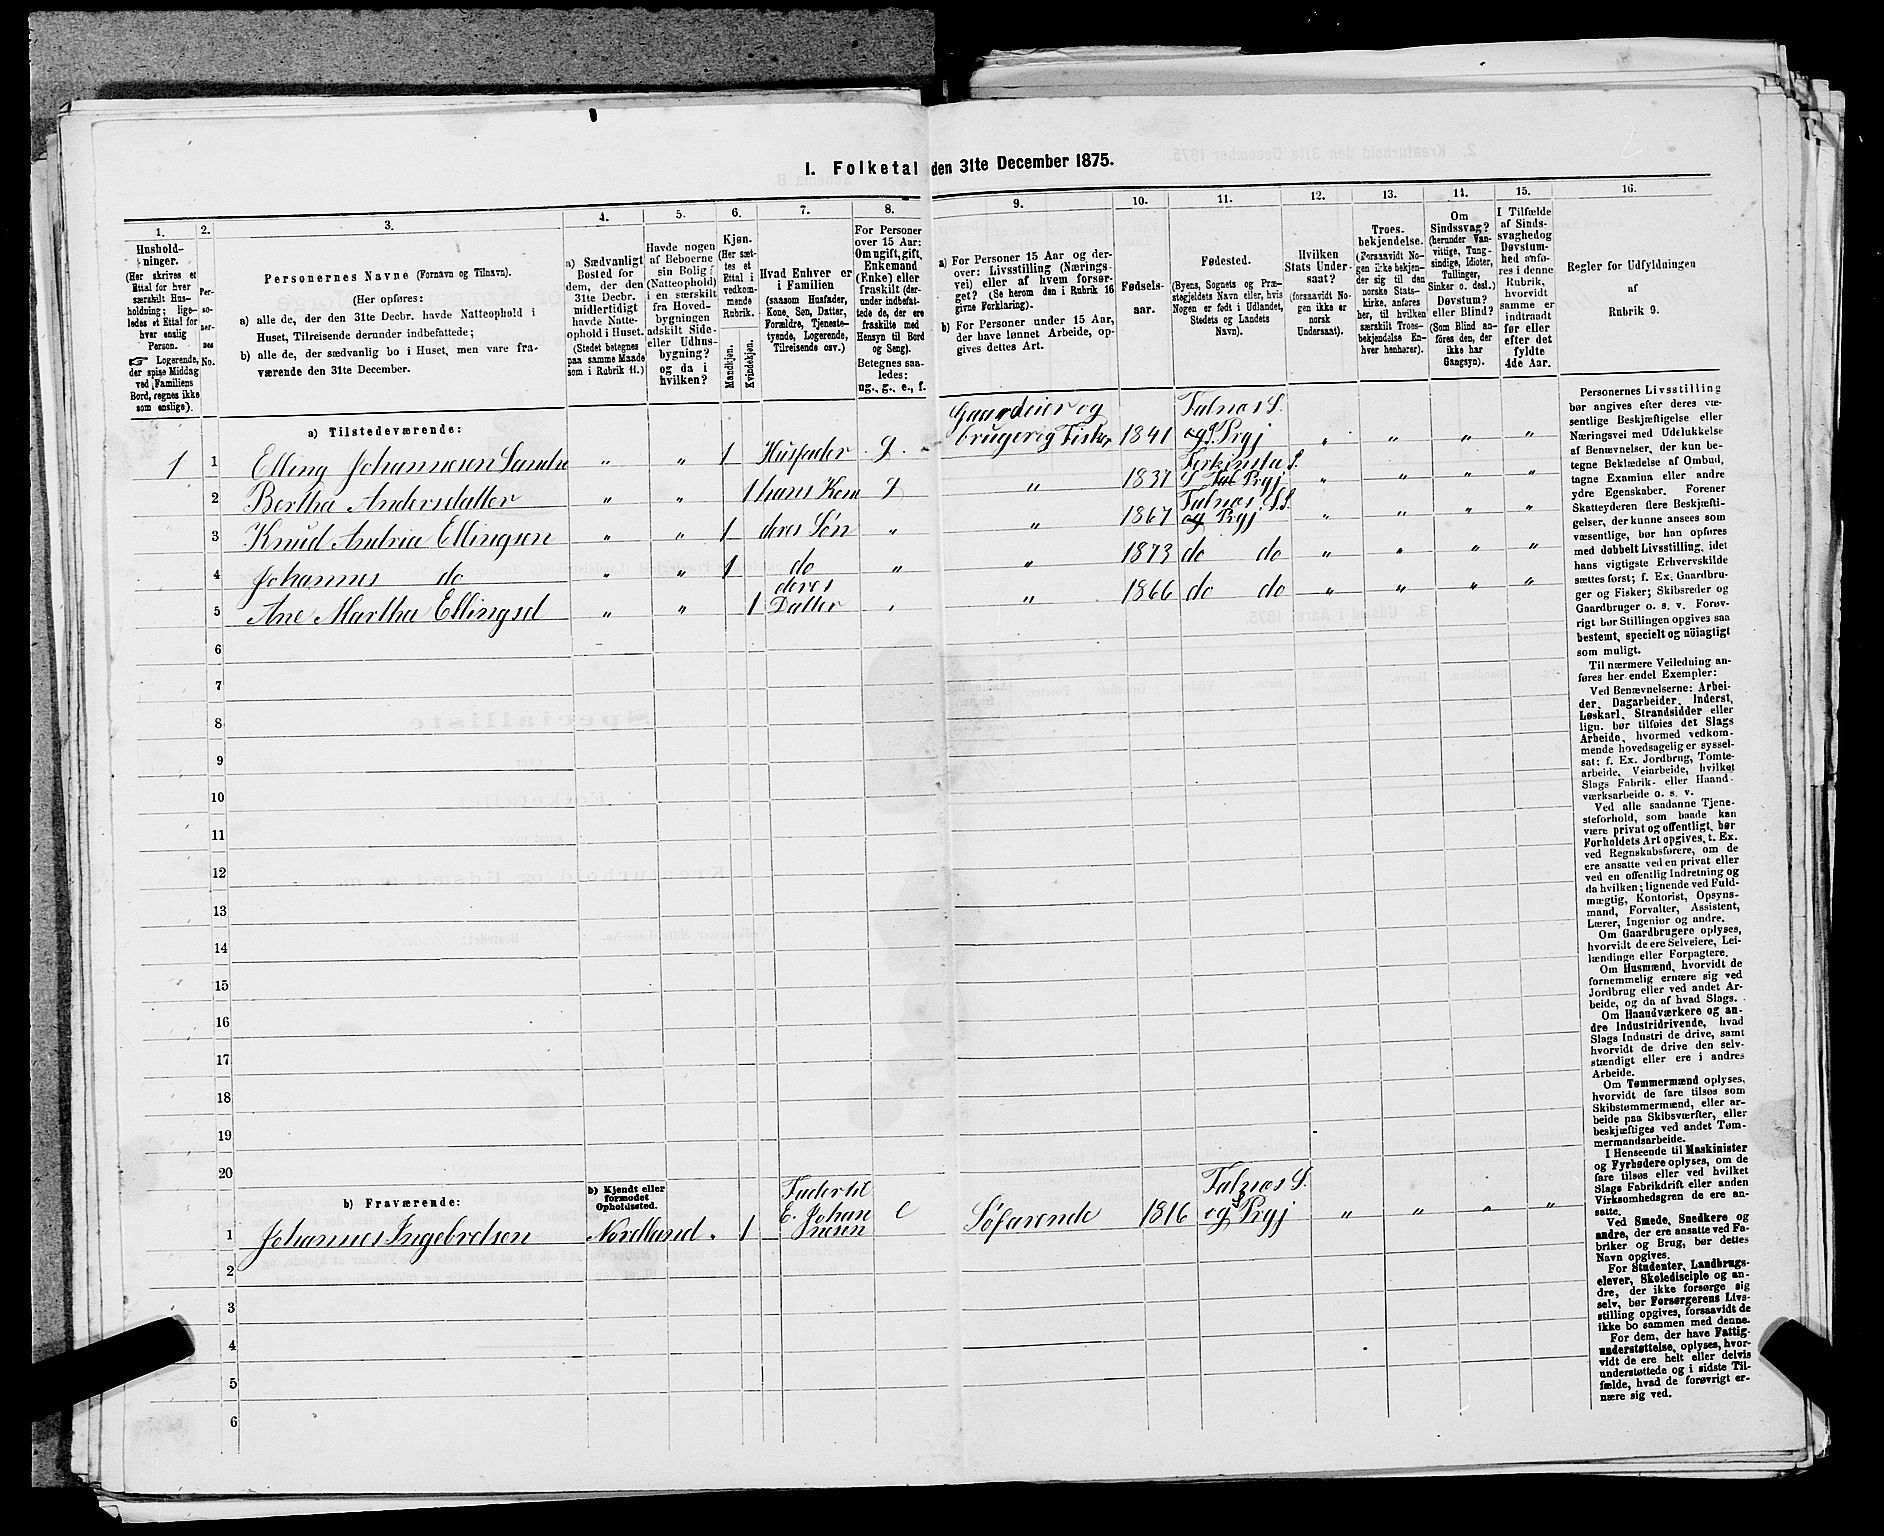 1. Folketal den 31te December 1875.
1.
Hushold-
ninger.
(Her skrives et
Ettal for hver
særskilt Hus-
holdning; lige-
ledes et Ettal for
hver enslig
Person.
☞ Logerende,
der spise Middag
ved Familiens
Bord, regnes ikke
som enslige).
2.
Per-
so-
ner-
nes
No.
3.
Personernes Navne (Fornavn og Tilnavn).
(Her opføres:
a) alle de, der den 31te Decbr. havde Natteophold i
Huset, Tilreisende derunder indbefattede;
b) alle de, der sædvanlig bo i Huset, men vare fra-
værende den 31te December.
4.
a) Sædvanligt
Bosted for
dem, der den
31te Decbr.
midlertidigt
havde Natte-
ophold i Huset.
(Stedet betegnes
paa samme Maade
som i Rubrik 11.)
5.
Havde nogen
af Beboerne
sin Bolig
(Natteophold)
i en særskilt
fra Hoved-
bygningen
adskilt Side-
eller Udhus-
bygning?
og da i
hvilken?
6.
Kjøn.
(Her sæt-
tes et
Ettal i
vedkom-
mende
Rubrik.
Mandkjøn.
Kvindekjøn.
7.
Hvad Enhver er
i Familien
(saasom Husfader,
Kone, Søn, Datter,
Forældre, Tjeneste-
tyende, Logerende,
Tilreisende osv.)
8.
For Personer
over 15 Aar:
Om ugift, gift,
Enkemand
(Enke) eller
fraskilt (der-
under indbefat-
tede de, der ere
fraskilte med
Hensyn til Bord
og Seng).
Betegnes saa-
ledes:
ug., g., e., f.
9.
a) For Personer 15 Aar og der-
over: Livsstilling (Nærings-
vei) eller af hvem forsør-
get? (Se herom den i Rubrik 16
givne Forklaring).
b) For Personer under 15 Aar,
der have lønnet Arbeide, op-
gives dettes Art.
10.
Fødsels-
aar.
11.
Fødested.
(Byens, Sognets og Præ-
stegjeldets Navn eller, hvis
Nogen er født i Udlandet,
Stedets og Landets
Navn).
12.
Hvilken
Stats Under-
saat?
(forsaavidt No-
gen ikke er
norsk
Undersaat).
13.
Troes-
bekjendelse.
(Forsaavidt No-
gen ikke bekjen-
der sig til den
norske Stats-
kirke, anføres
her, til hvilken
særskilt Troes-
bekjendelse En-
hver henhører).
14.
Om
Sindssvag?
(herunder Van-
vittige, Tung-
sindige, Idioter,
Tullinger,
Sinker o. desl.)
Døvstum?
eller Blind?
(Som Blind an-
føres den, der
ikke har
Gangsyn).
15.
I Tilfælde
af Sinds-
svaghed og
Døvstum-
hed anfø-
res i denne
Rubrik,
hvorvidt
samme er
indtraadt
før eller
efter det
fyldte
4de Aar.
16.
Regler for Udfyldningen
af
Rubrik 9.
a) Tilstedeværende:
Gaardeier og Falnæs S.
1 1 Elling Johannesen Sandhe " " 1 Husfader . g . bruger og Fisker 1841 og Prgj " " " "
S.
2 Bertha Andersdatter " " 1 hans Kone g " 1837 Prgj " " " "
Falnæs S.
3 Knud Andria Ellingsen " " 1 deres Søn " " 1867 og Prgj " " " "
4 Johannes do " " 1 do " " 1873 do do " " " "
deres
5 Ane Martha Ellingsd " " 1 Datter " " 1866 do do " " " "
6
7
8
9
10
11
12
13
14
15
16
17
18
19
20
b) Fraværende:
b) Kjendt eller
formodet
Opholdssted.
Fader til Falnæs S.
E. Johan
1 Johannes Ingebretsen Nordland " 1 nesen e Søfarende 1816 og Prgj " " " "
2
3
4
5
6
Personernes Livsstilling
bør angives efter deres væ-
sentlige Beskjæftigelse eller
Næringsvei med Udelukkelse
af Benævnelser, der kun be-
tegne Beklædelse af Ombud,
tagne Examina eller andre
ydre Egenskaber. Forener
Skatteyderen flere Beskjæfti-
gelser, der kunne ansees som
væsentlige, bør han opføres
med dobbelt Livsstilling, idet
hans vigtigste Erhvervskilde
sættes først; f. Ex. Gaardbru-
ger og Fisker; Skibsreder og
Gaardbruger o. s. v. Forøv-
rigt bør Stillingen opgives saa
bestemt, specielt og nöiagtigt
som muligt.
Til nærmere Veiledning an-
føres her endel Exempler:
Ved Benævnelserne: Arbei-
der, Dagarbeider, Inderst,
Løskarl, Strandsidder eller
lign. bør tilføies det Slags
Arbeide, hvormed vedkom-
mende hovedsagelig er syssel-
sat; f. Ex. Jordbrug, Tomte-
arbeide, Veiarbeide, hvilket
Slags Fabrik- eller Haand-
værksarbeide o. s. v.
Ved alle saadanne Tjene-
steforhold, som baade kan
være privat og offentligt, bør
Forholdets Art opgives, t. Ex.
ved Regnskabsførere, om de
ere ansatte ved en privat eller
ved en offentlig Indretning og
da hvilken; lignende ved Fuld-
mægtig, Kontorist, Opsyns-
mand, Forvalter, Assistent,
Lærer, Ingeniør og andre.
Om Gaardbrugere oplyses,
hvorvidt de ere Selveiere, Lei-
lændinge eller Forpagtere.
Om Husmænd, hvorvidt de
fornemmelig ernære sig ved
Jordbrug eller ved andet Ar-
beide, og da af hvad Slags.
Om Haandværkere og an-
dre Industridrivende, hvad
Slags Industri de drive, samt
hvorvidt de drive den selv-
stændigt eller ere i andres
Arbeide.
Om Tømmermænd oplyses,
hvorvidt de fare tilsøs som
Skibstømmermænd, eller ar-
beide paa Skibsværfter, eller
beskjæftiges ved andet Tøm-
mermandsarbeide.
I Henseende til Maskinister
og Fyrbødere oplyses, om de
fare tilsøs eller ved hvilket
Slags Fabrikdrift eller anden
Virksomhedsgren de ere an-
satte.
Ved Smede, Snedkere og
andre, der ere ansatte ved Fa-
briker og Brug, bør dettes
Navn opgives.
For Studenter, Landbrugs-
elever, Skoledisciple og an-
dre, der ikke forsørge sig
selv, bør Forsørgerens Livs-
stilling opgives, forsaavidt de
ikke bo sammen med denne.
For dem, der have Fattig-
understøttelse, oplyses, hvor-
vidt de ere helt eller delvis
understøttede og i sidste Til-
fælde, hvad de forøvrigt er-
nære sig ved.